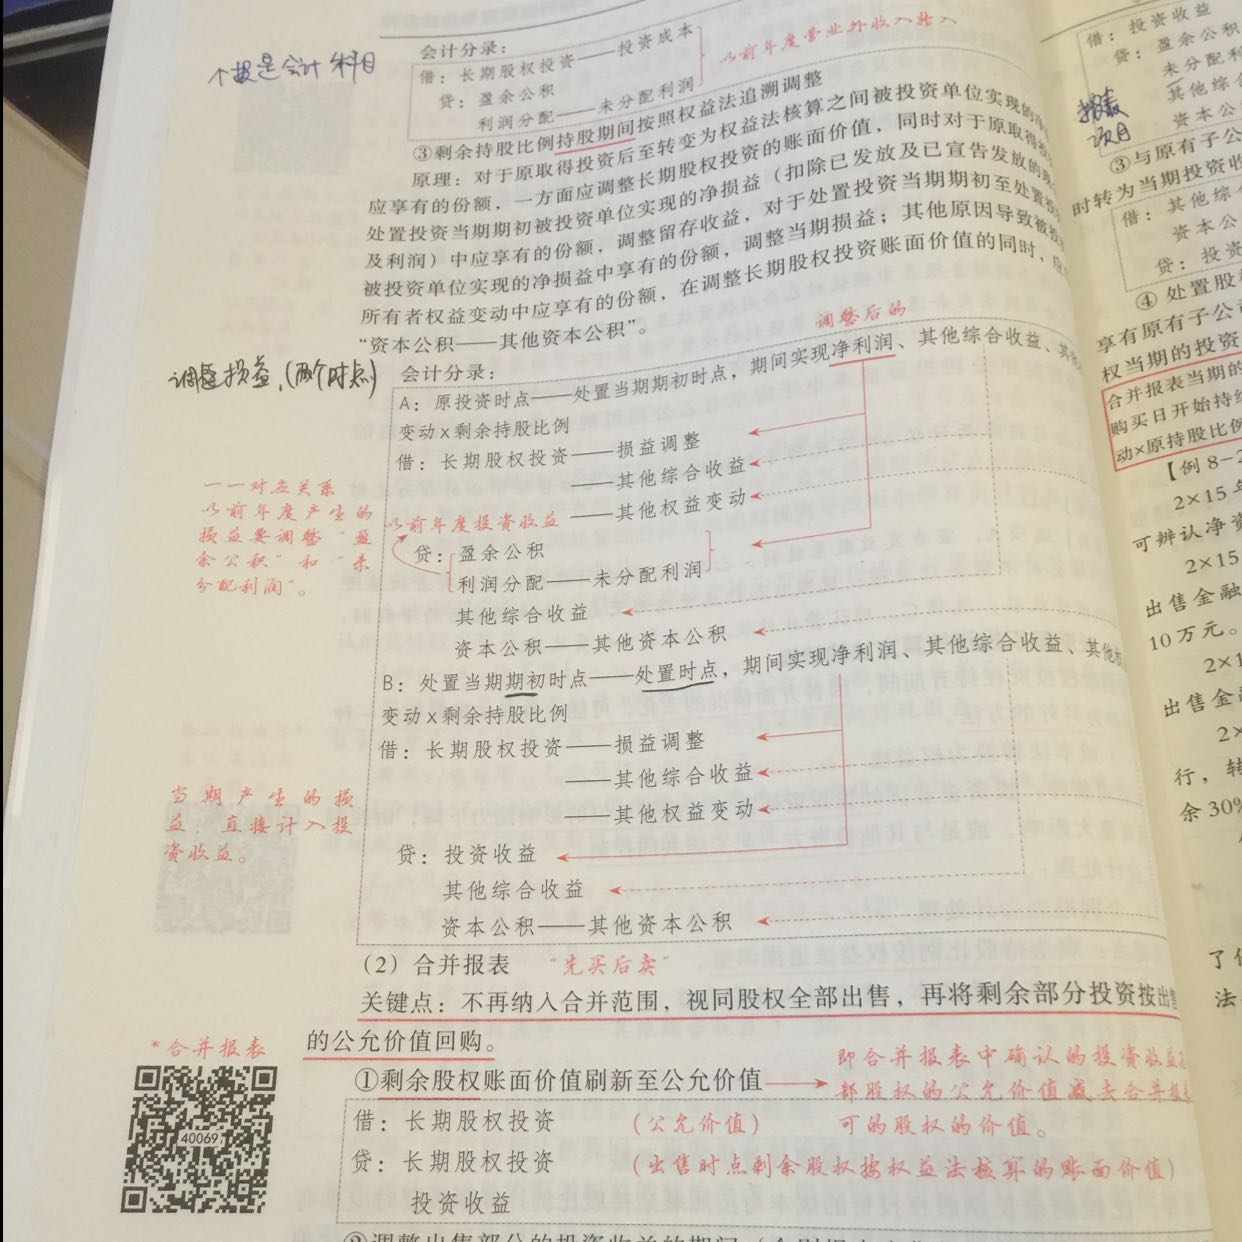 会计分录：
借：长期股权投资——投资成本
贷：盈余公积
利润分配——未分配利润
以前年度营业外收入转入
个报是会计科目
③剩余持股比例持股期间按照权益法追溯调整
原理：对于原取得投资后至转变为权益法核算之间被投资单位实现的净
应享有的份额，一方面应调整长期股权投资的账面价值，同时对于原取得投
处置投资当期期初被投资单位实现的净损益（扣除已发放及已宣告发放的现
及利润）中应享有的份额，调整留存收益，对于处置投资当期期初至处置投
被投资单位实现的净损益中享有的份额，调整当期损益；其他原因导致被投
所有者权益变动中应享有的份额，在调整长期股权投资账面价值的同时，应
“资本公积——其他资本公积”。
调整后的
调整损益，(两个时点)
会计分录：
A：原投资时点——处置当期期初时点，期间实现净利润、其他综合收益、其
变动×剩余持股比例
借：长期股权投资——损益调整
——其他综合收益
——其他权益变动
以前年度投资收益
贷：盈余公积
利润分配——未分配利润
其他综合收益
资本公积——其他资本公积
一一对应关系
以前年度产生的
损益要调整“盈
余公积”和“未
分配利润”。
B：处置当期期初时点——处置时点，期间实现净利润、其他综合收益、其他
变动×剩余持股比例
借：长期股权投资——损益调整
——其他综合收益
——其他权益变动
贷：投资收益
其他综合收益
资本公积——其他资本公积
当期产生的损
益，直接计入投
资收益。
（2）合并报表 “先买后卖”
关键点：不再纳入合并范围，视同股权全部出售，再将剩余部分投资按出售
的公允价值回购。
*合并报表
40069
①剩余股权账面价值刷新至公允价值
即合并报表中确认的投资收益
部股权的公允价值减去合并报
可的股权的价值。
借：长期股权投资 （公允价值）
贷：长期股权投资 （出售时点剩余股权按权益法核算的账面价值）
投资收益
借：投资收益
贷：盈余公积
未分配利
其他综
资本公
报表
项目
③与原有子公
时转为当期投资收
借：其他综
资本公
贷：投资
④处置股
享有原有子公司
权当期的投资
合并报表当期的
购买日开始持续
动×原持股比例
【例8-2
2×15年
可辨认净资
2×15
出售金融
10万元。
2×1
出售金融
2×
行，转
余30%
了但
法